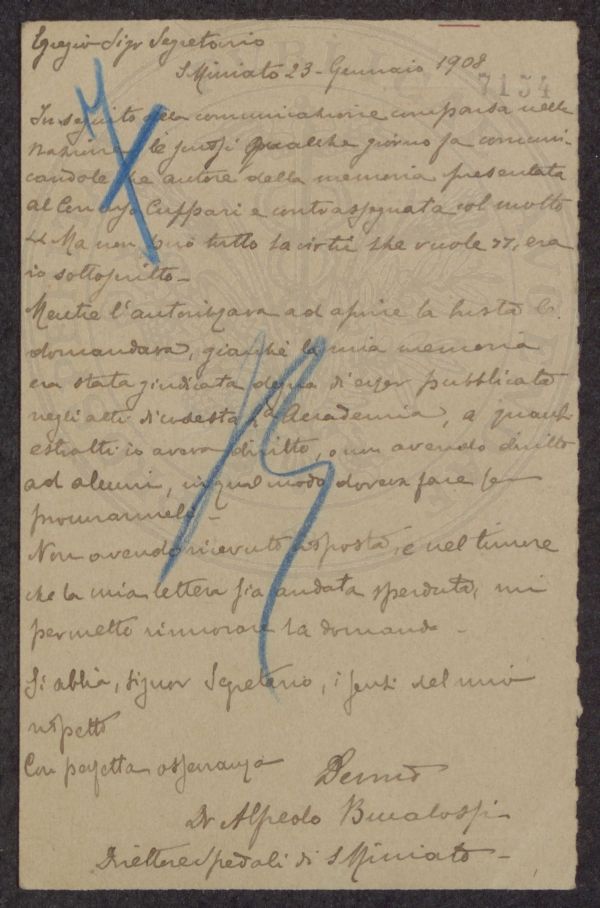 Egregio Sigr Segretario
S Miniato 23 - Gennaio 1908
7154
In seguito alla comunicazione comparsa nella
nazione le scrissi qualche giorno fa comuni-
candole che autore della memoria presentata
al Concorso Cuppari e contrassegnata col motto
"Ma non può tutto la virtù che vuole", era
io sottoscritto -
Mentre l'autorizzava ad aprire la busta le
domandava, giacchè la mia memoria
era stata giudicata degna di esser pubblicata
negli atti di codesta Accademia, a quanti
estratti io aveva diritto, o non avendo diritto
ad alcuni, in qual modo doveva fare per
procurarmeli -
Non avendo ricevuto risposta, e nel timore
che la mia lettera sia andata sperduta, mi
permetto rinnovare la domanda -
Si abbia, Signor Segretario, i sensi del mio
rispetto
Con perfetta osservanza
Devmo
Dr Alfredo Bucalossi
Direttore Spedali di S Miniato -